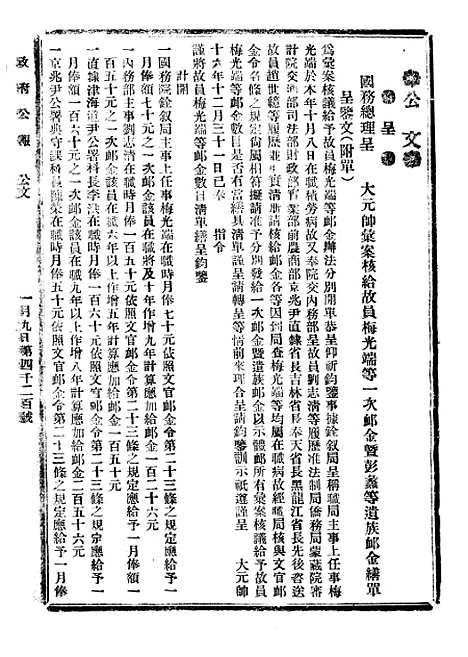 公文
呈
國務總理呈　大元帥彙案核給故員梅光端等一次卹金暨彭蠡等遺族卹金繕單
呈鑒文（附單）
爲彙案核議給予故員梅光端等卹金辦法分別開單恭呈仰祈鈞鑒事據銓叙局呈稱職局主事上任事梅
光端於本年十月八日在職積勞病故又奉院交內務部呈故員劉志清等履歷准法制局僑務局蒙藏院審
計院交通部司法部財政部實業部前農商部京兆尹直隸省長吉林省長奉天省長黑龍江省長先後咨送
故員趙世
金令各條之規定尙屬相符擬請准予分別發給一次卹金暨遺族卹金以示體卹所有彙案核議給予故員
梅光端等卹金數目是否有當繕具清單呈請轉呈等情前來理合呈請鈞鑒訓示祇遵謹呈　大元帥
十六年十二月三十一日已奉　指令
謹將故員梅光端等卹金數目清單繕呈鈞鑒
計開
一國務院銓叙局主事上任事梅光端在職時月俸七十元依照文官卹金令第二十三條之規定應給予一
月俸額七十元之一次卹金該員在職將及十年作增九年計算應加給卹金一百二十六元
一內務部主事劉志清在職時月俸一百五十元依照文官卹金令第二十三條之規定應給予一月俸額一
百五十元之一次卹金該員在職六年以上作增五年計算應加給卹金一百五十元
一直隸津海道尹公署科長李
百六十元之一次卹金該員在職九年以上作增八年計算應加給卹金二百五十六元
一京兆尹公署典守課科員陳榮在職時月俸五十元依照文官卹金令第二十三條之規定應給予一月俸
政府公報　公文　一月九日第四千二百號